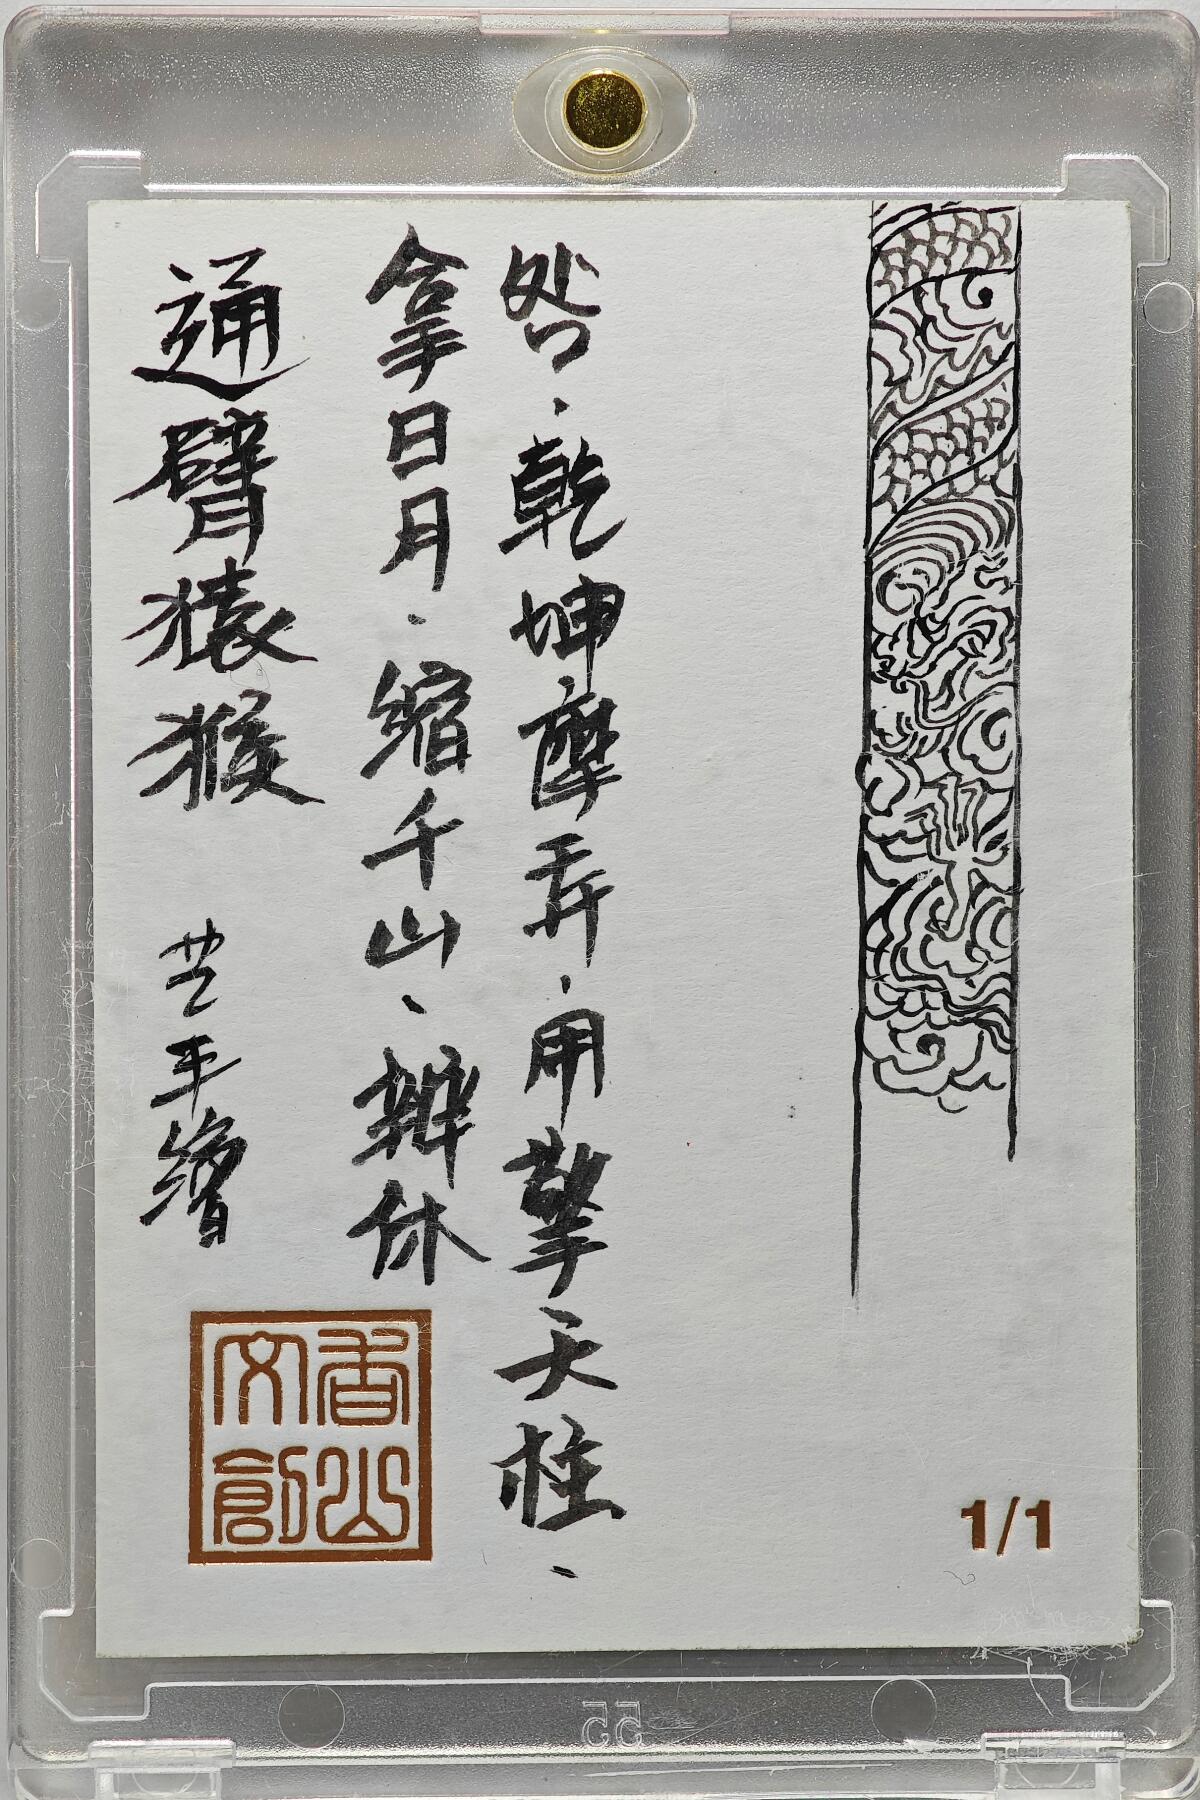 通臂猿猴
拿日月、缩千山、辨休
咎、乾坤摩弄、用擎天柱、
手繪
香山
文創
1/1
55